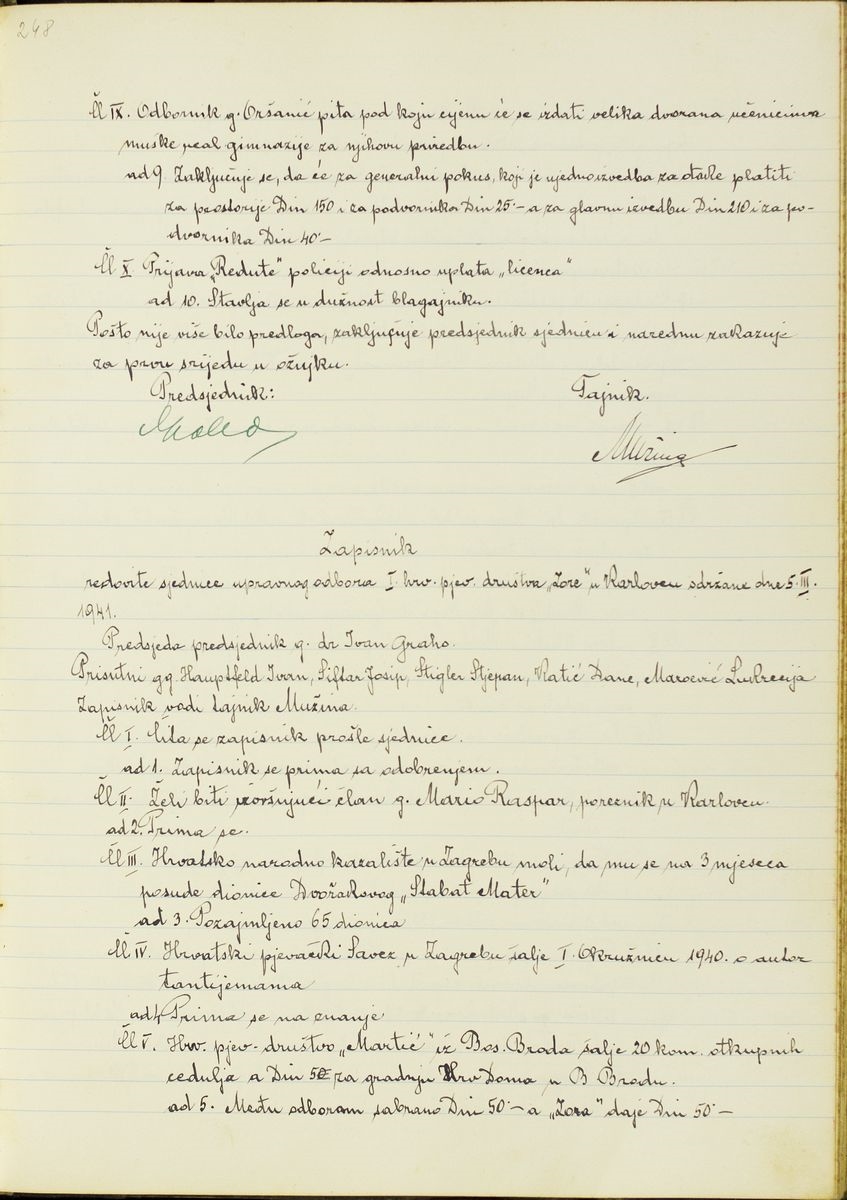 248
Čl IX. Odbornik g. Oršanić pita pod koju cijenu će se izdati velika dvorana učenicima
muške real gimnazije za njihovu priredbu.
ad 9. Zaključuje se, da će za generalni pokus, koji je ujedno izvedba za đake platiti
za prostorije Din 150 i za podvornika Din 25·– a za glavnu izvedbu Din 210 i za po-
dvornika Din 40·–
Čl X. Prijava „Redute" policiji odnosno uplata „licenca"
ad 10. Stavlja se u dužnost blagajniku.
Pošto nije više bilo predloga, zaključuje predsjednik sjednicu i narednu zakazuje
za prvu srijedu u ožujku.
Predsjednik: Tajnik.
Mužina
Zapisnik
redovite sjednice upravnog odbora I. hrv. pjev. društva „Zore" u Karlovcu održane dne 5. III.
1941.
Predsjeda predsjednik g. dr Ivan Graho.
Prisutni gg. Hauptfeld Ivan, Šiftar Josip, Stigler Stjepan, Katić Dane, Maroević Lukrecija
Zapisnik vodi tajnik Mužina.
Čl I. Čita se zapisnik prošle sjednice.
ad 1. Zapisnik se prima sa odobrenjem.
Čl II. Želi biti izvršujući član g. Mario Raspar, poreznik u Karlovcu.
ad 2. Prima se.
Čl III. Hrvatsko narodno kazalište u Zagrebu moli, da mu se na 3 mjeseca
posude dionice Dvořakovog „Stabat Mater"
ad 3. Pozajmljeno 65 dionica
Čl IV. Hrvatski pjevački Savez u Zagrebu šalje I. Okružnicu 1940. o autor
tantijemama
ad 4 Prima se na znanje
Čl V. Hrv. pjev. društvo „Martić" iz Bos. Broda šalje 20 kom. otkupnih
cedulja a Din 5 za gradnju Hrv Doma u B Brodu.
ad 5. Među odborom sabrano Din 50·– a „Zora" daje Din 50·–